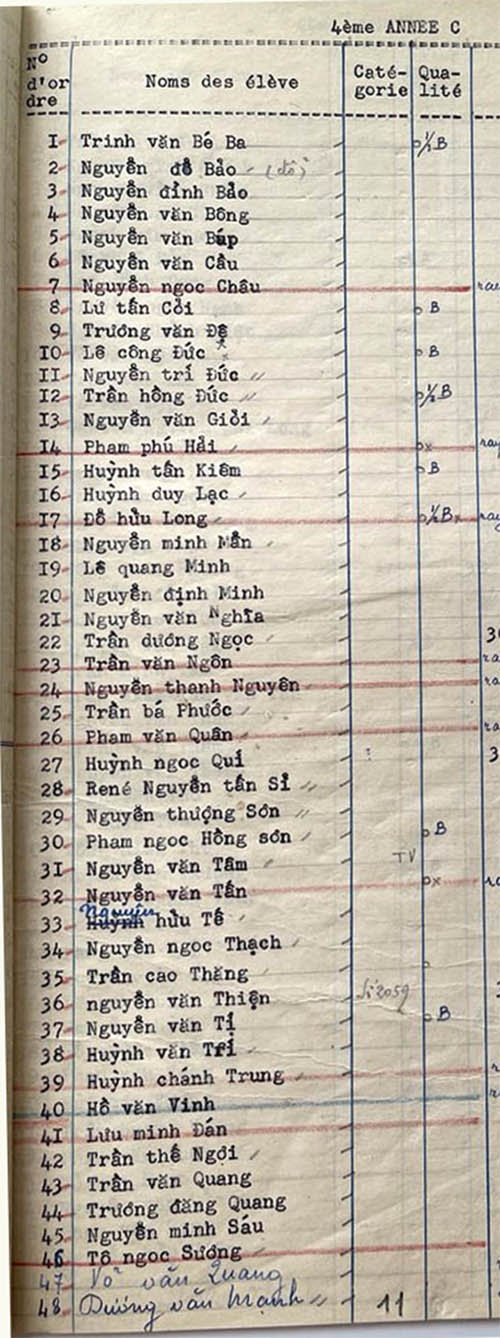 4ème ANNEE C
N° d'or dre Noms des élève Caté- gorie Qua- lité
I Trinh văn Bé Ba ½ B
2 Nguyễn đễ Bảo (đô)
3 Nguyễn đình Bảo
4 Nguyễn văn Bông
5 Nguyễn văn Búp
6 Nguyễn văn Cầu
7 Nguyễn ngoc Châu
8 Lư tấn Cỏi B
9 Trương văn Đệ
IO Lê công Đức B
II Nguyễn trí Đức
I2 Trần hồng Đức ½ B
I3 Nguyễn văn Giỏi
I4 Pham phú Hải x
I5 Huỳnh tấn Kiêm B
I6 Huỳnh duy Lạc
I7 Đỗ hữu Long ½ B
I8 Nguyễn minh Mẫn
I9 Lê quang Minh
20 Nguyễn định Minh
2I Nguyễn văn Nghĩa
22 Trần dương Ngọc
23 Trần văn Ngôn
24 Nguyễn thanh Nguyên
25 Trần bá Phước
26 Pham văn Quân
27 Huỳnh ngoc Quí
28 René Nguyễn tấn Sĩ
29 Nguyễn thượng Sơn
30 Pham ngoc Hồng sơn B
3I Nguyễn văn Tâm TV
32 Nguyễn văn Tấn x
Nguyễn
33 Huỳnh hữu Tế
34 Nguyễn ngoc Thạch
35 Trần cao Thăng
36 nguyễn văn Thiện
37 Nguyễn văn Tị B
38 Huỳnh văn Trí
39 Huỳnh chánh Trung
40 Hồ văn Vinh
4I Lưu minh Đán
42 Trần thế Ngời
43 Trần văn Quang
44 Trương đăng Quang
45 Nguyễn minh Sáu
46 Tô ngoc Sương
47 Võ văn Quang
48 Dương văn Mạnh 11